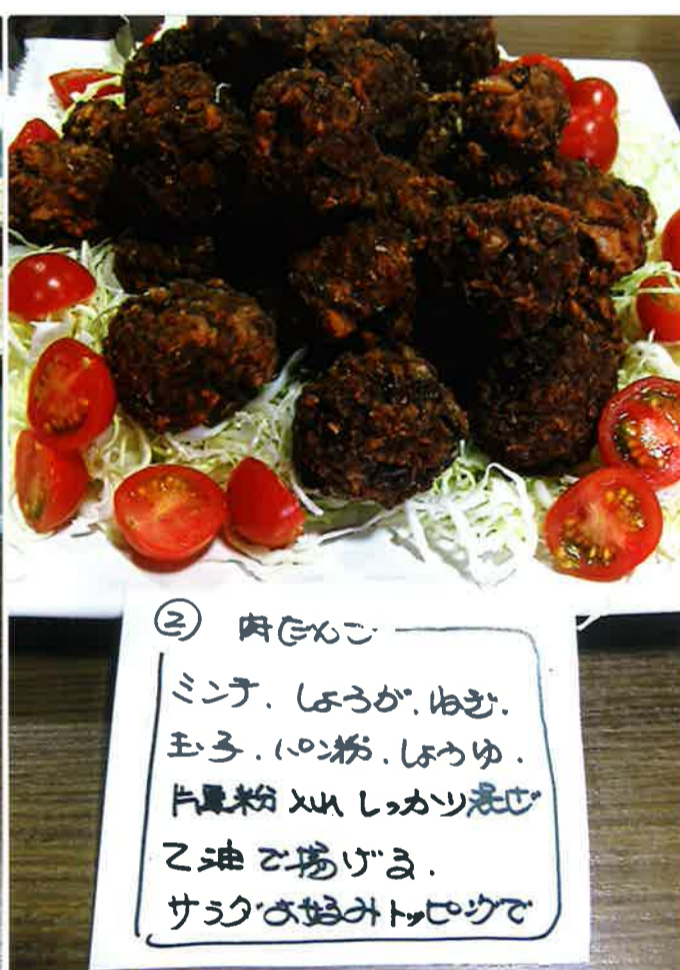 ② 肉だんご
ミンチ.しょうが.ねぎ.
玉子.パン粉.しょうゆ.
片栗粉 入れ しっかり混ぜ
て油で揚げる.
サラダお好みトッピングで